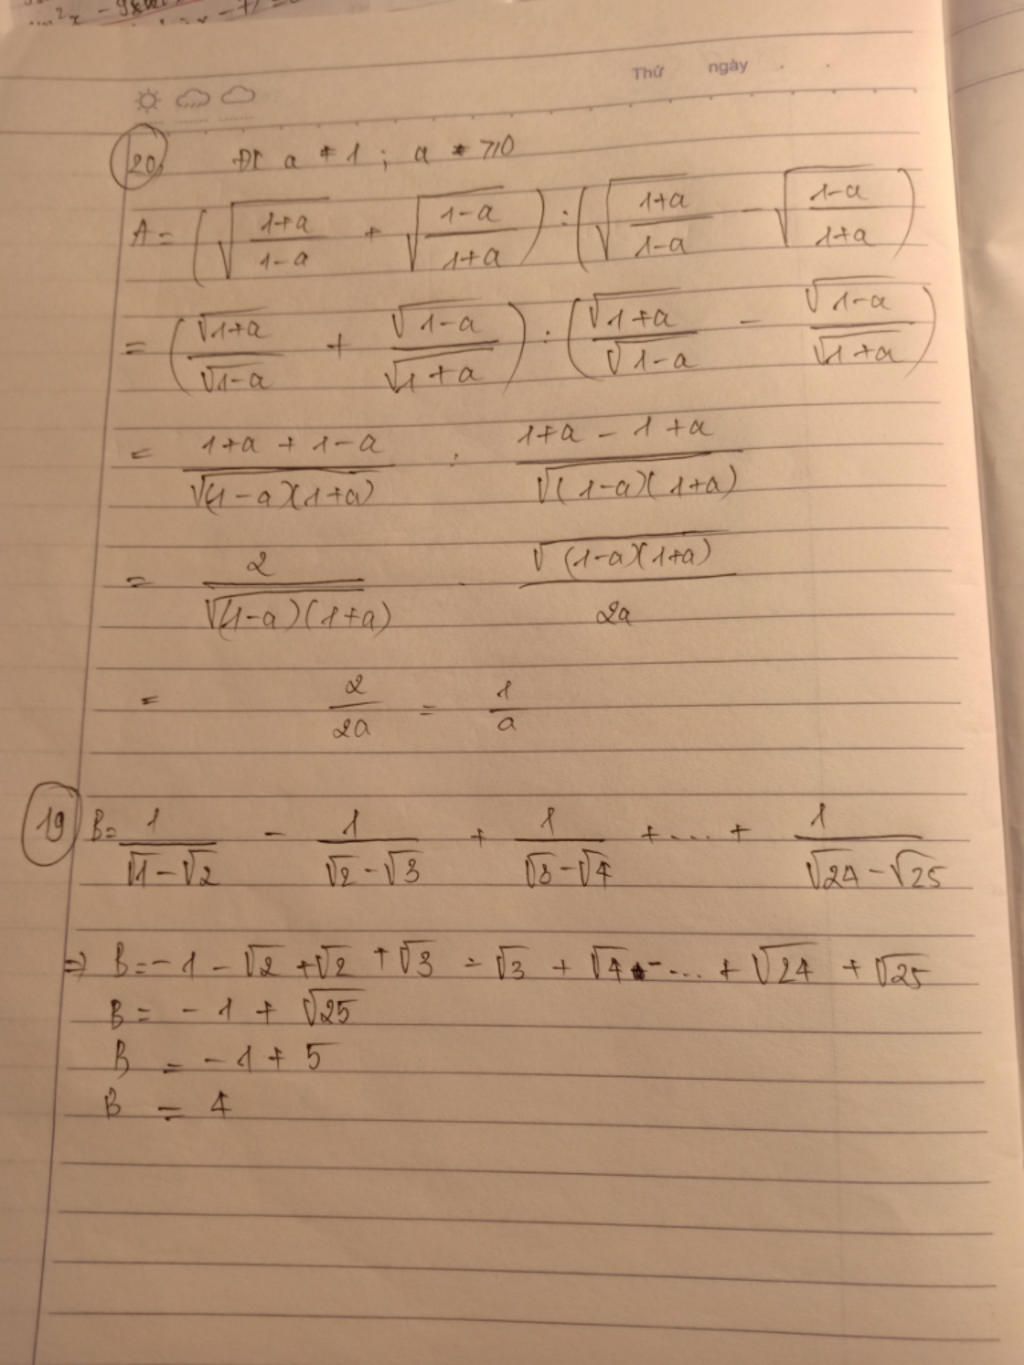 Thứ ngày
20, ĐK a ≠ 1 ; a ≠ 7/0
A = (√((1+a)/(1-a)) + √((1-a)/(1+a))) : (√((1+a)/(1-a)) - √((1-a)/(1+a)))
= (√(1+a)/√(1-a) + √(1-a)/√(1+a)) : (√(1+a)/√(1-a) - √(1-a)/√(1+a))
= (1+a+1-a)/√((1-a)(1+a)) : (1+a-1+a)/√((1-a)(1+a))
= 2/√((1-a)(1+a)) . √((1-a)(1+a))/2a
= 2/2a = 1/a
19 B = 1/(√1-√2) - 1/(√2-√3) + 1/(√3-√4) + ... + 1/(√24-√25)
=> B = -1 - √2 + √2 + √3 - √3 + √4 - ... + √24 + √25
B = -1 + √25
B = -1 + 5
B = 4